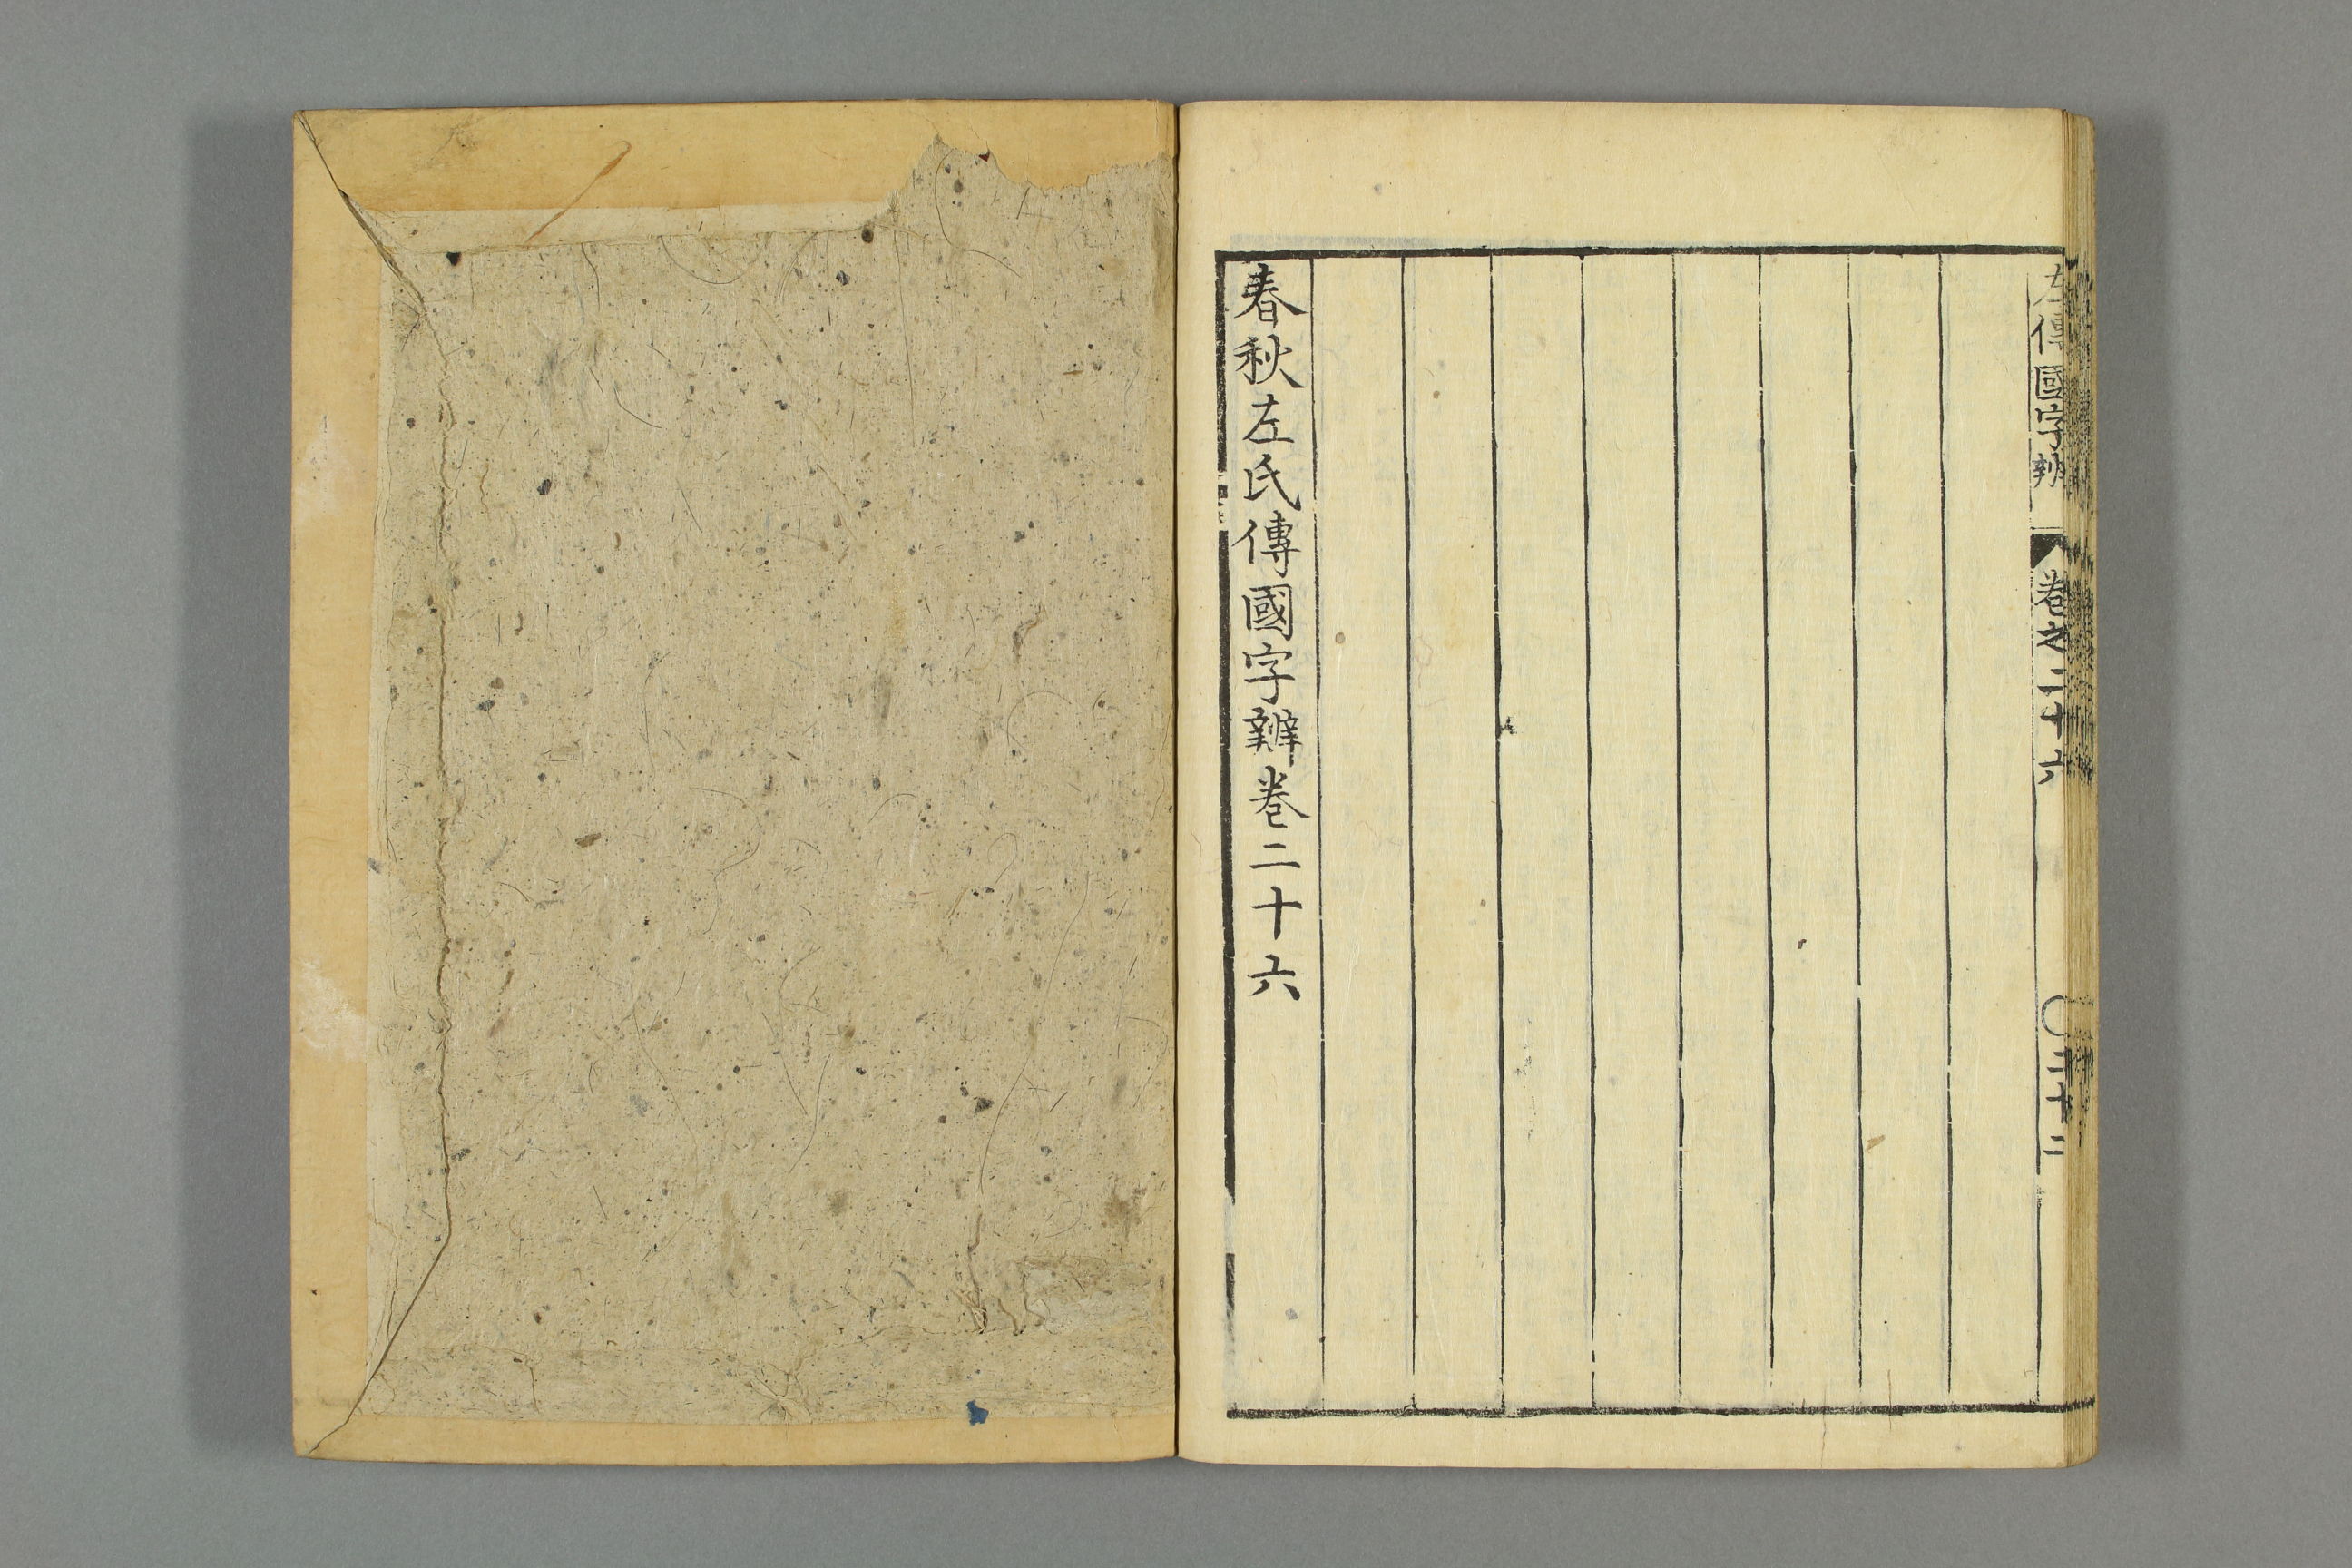 左傳國字辨 卷之二十六 〇三十二
春秋左氏傳國字辨卷二十六